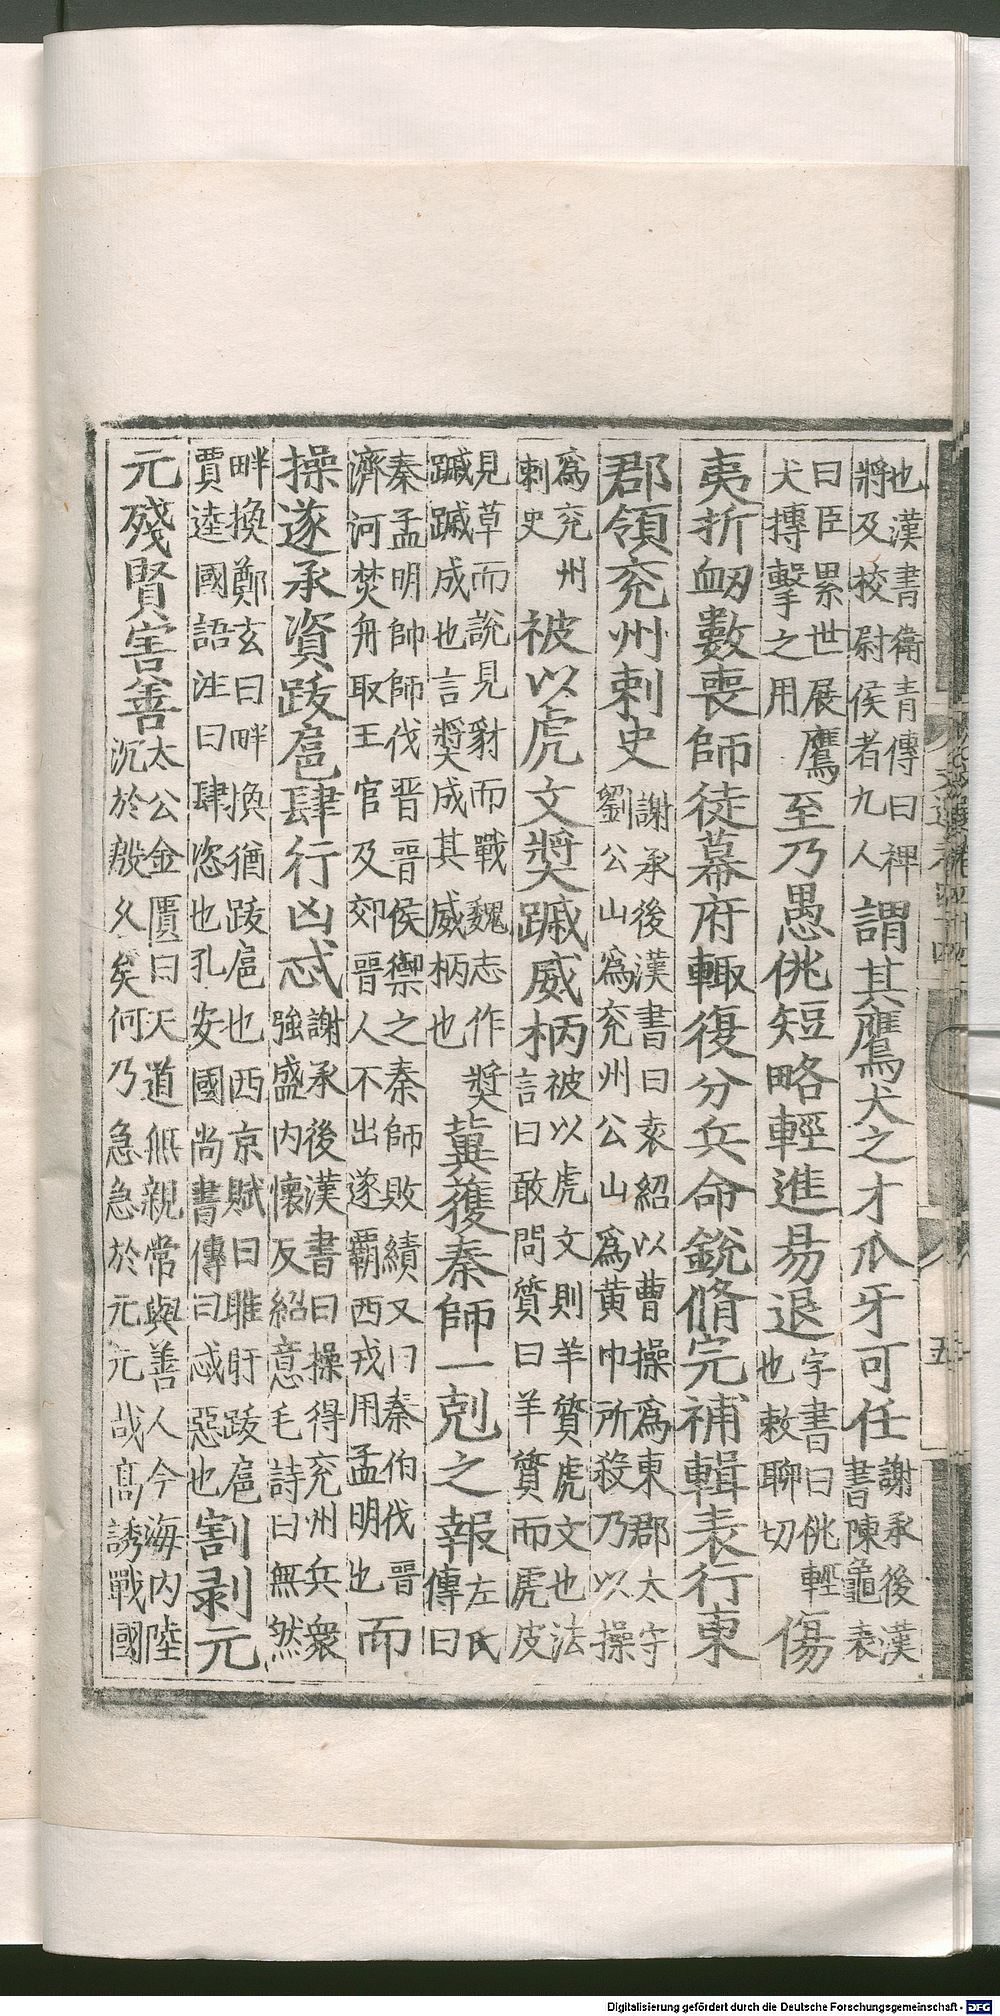 也漢書衛青傳曰裨將及校尉侯者九人謂其鷹犬之才爪牙可任謝承後漢書陳龜表
曰臣累世展鷹犬摶擊之用至乃愚佻短略輕進易退字書曰佻輕也敕聊切傷
夷折衂數喪師徒幕府輒復分兵命銳脩完補輯表行東
郡領兖州刺史謝承後漢書曰袁紹以曹操為東郡太守劉公山為兖州公山為黃巾所殺乃以操
為兖州刺史被以虎文獎蹴威柄被以虎文則羊質虎文也法言曰敢問質曰羊質而虎皮
見草而說見豺而戰魏志作獎蹴蹴成也言獎成其威柄也冀獲秦師一剋之報左氏傳曰
秦孟明帥師伐晉晉侯禦之秦師敗績又曰秦伯伐晉濟河焚舟取王官及郊晉人不出遂霸西戎用孟明也而
操遂承資跋扈肆行凶忒謝承後漢書曰操得兖州兵衆強盛內懷反紹意毛詩曰無然
畔換鄭玄曰畔換猶跋扈也西京賦曰睢盱跋扈賈逵國語注曰肆恣也孔安國尚書傳曰忒惡也割剥元
元殘賢害善太公金匱曰天道無親常與善人今海內陸沉於殷久矣何乃急急於元元哉高誘戰國
Digitalisierung gefördert durch die Deutsche Forschungsgemeinschaft - DFG